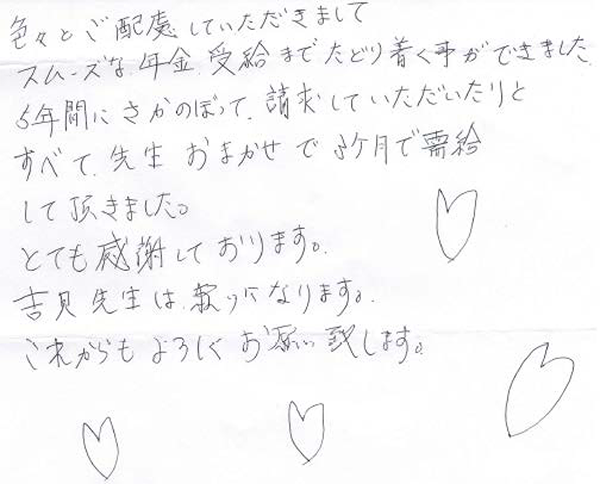 色々とご配慮していただきまして
スムーズな、年金、受給までたどり着く事ができました。
5年間にさかのぼって、請求していただいたりと
すべて、先生 おまかせで 3ヶ月で需給
して頂きました。
とても感謝しております。
吉貝先生は、頼りになります。
これからもよろしくお願い致します。